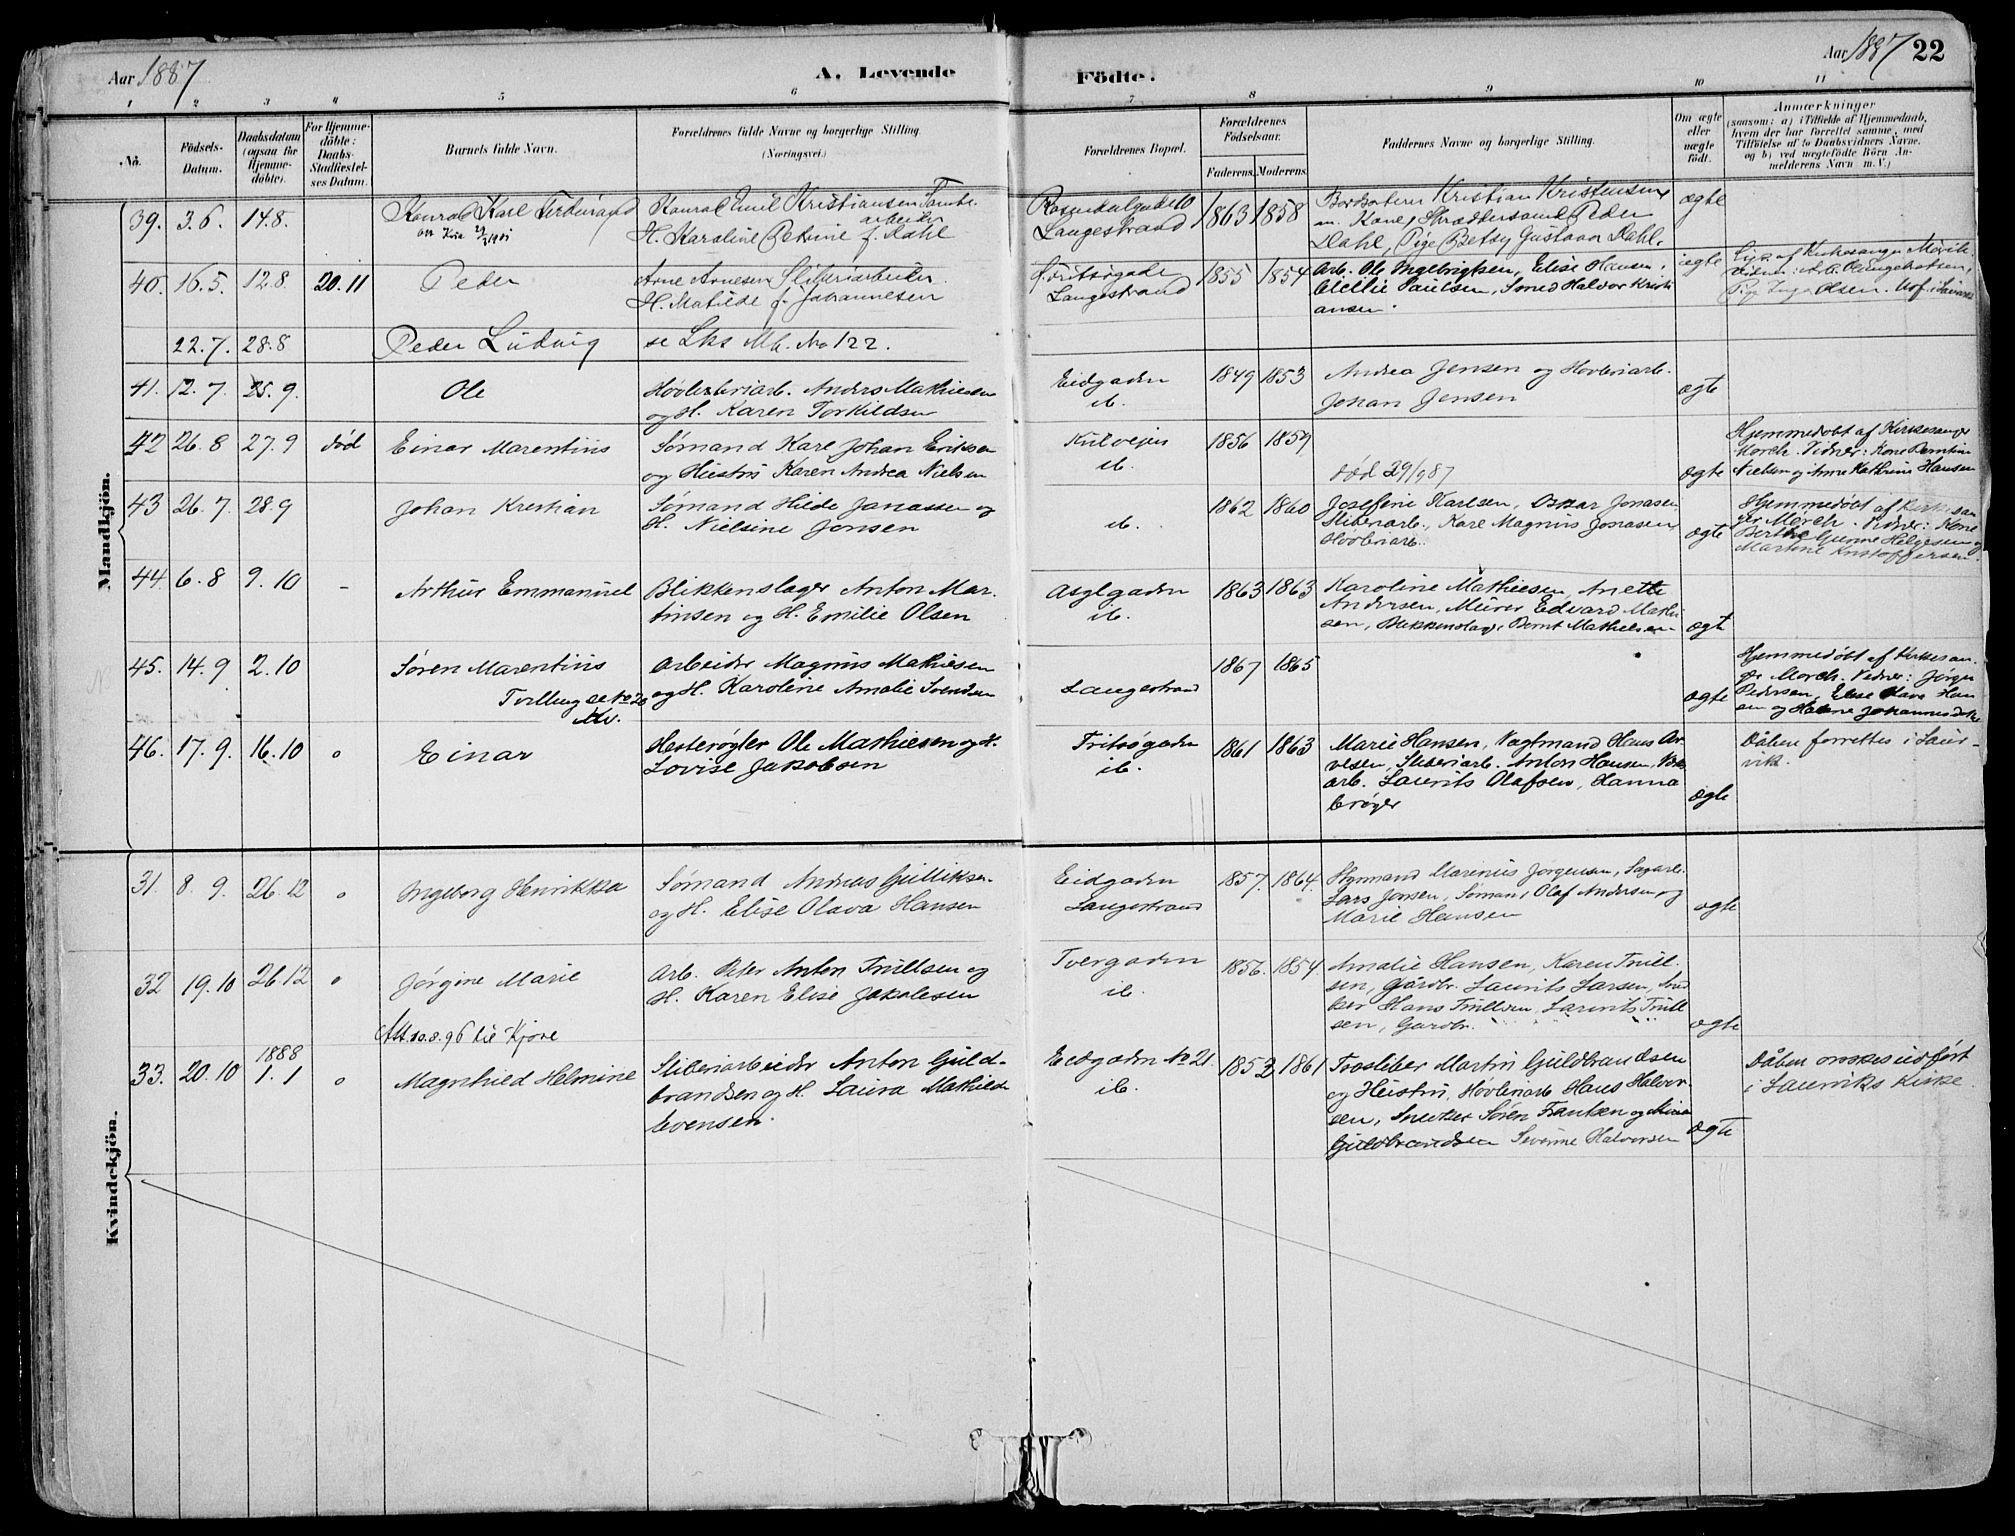 Aar 1887
A. Levende Födte.
Aar 1887 22
1 2 3 4 5 6 7 8 9 10 11
No.
Födsels-
Datum.
Daabsdatum
(ogsaa for
Hjemme-
döbte).
For Hjemme-
döbte:
Daabs-
Stadfæstel-
ses Datum.
Barnets fulde Navn.
Forældrenes fulde Navne og borgerlige Stilling.
(Næringsvei.)
Forældrenes Bopæl.
Forældrenes
Födselsaar.
Faderens. Moderens.
Faddernes Navne og borgerlige Stilling.
Om ægte
eller
uægte
født.
Anmærkninger
(saasom: a) i Tilfælde af Hjemmedaab,
hvem der har forrettet samme, med
Tilföielse af to Daabsvidners Navne,
og b) ved uægtefödte Börn An-
melderens Navn m. V.)
Mandkjön.
39. 3.6. 14.8. Konrad Karl Ferdinand
Konrad Emil Kristiansen
arbeider
H. Karoline Petrine f. Dahl
Langestrand 1863 1858
Kristian Kristensen
m. Kone, Peder
Dahl, Pige Betsy Gustava Dahl.
ægte
40. 16.5. 12.8 20.11 Peder
Arne Arnesen Sliberiarbeider
H. Matilde f. Johannesen
Langestrand 1855 1854
Arb. Ole Ingebrigtsen, Elise Hansen,
Cecilie Paulsen, Smed Halvor Kristi
ansen
ægte
22.7. 28.8 Peder Ludvig se Lks Mk. No 122.
41. 12.7. 25.9. Ole
Høvleriarb. Anders Mathiesen
og H. Karen Torkildsen
Eidgaden
ib. 1849 1853
Andrea Jensen og Høvleriarb.
Johan Jensen
ægte
42 26.8 27.9 død Einar Marentius
Sømand Karl Johan Eriksen
og Hustru Karen Andrea Nielsen
ib. 1856 1859
død 29/9 87
ægte
Hjemmedøbt af Kirkesanger
Morch. Vidner: Kone Berntine
Nielsen og Anne Kathrine Hansen
43 26.7. 28.9 Johan Kristian
Sømand Hilde Janassen og
H. Nielsine Jensen
ib. 1862 1860
Josefine Karlsen, Oskar Jonasen
Sliberiarb., Karl Magnus Jonasen
Høvleriarb.
ægte
Hjemmedøbt af Kirkesan
ger Morch. Vidner: Kone
Berthe Helgesen og
Martine Kristoffersen.
44. 6.8 9.10 - Arthur Emmanuel
Blikkenslager Anton Mar-
tinsen og H. Emilie Olsen
ib. 1863 1863
Karoline Mathiesen, Anette
Andersen, Murer Edvard Mathi
sen, Blikkenslager Bernt Mathiesen
ægt
45. 14.9 2.10 Søren Marentius
Tvilling se No 28
Kv.
Arbeider Magnus Mathiesen
og H. Karoline Amalie Svendsen
Langestrand 1867 1865
ægte
Hjemmedøbt af Kirkesan-
ger Morch. Vidner: Jørgen
Pedersen, Elise Olava Han
sen og
46. 17.9. 16.10 o Einar
Hesterøgter Ole Mathiesen og H.
Lovise Jakobsen
Fritsøgaden
ib. 1861 1863
Marie Hansen, Vagtmand Hans Ar-
vesen, Sliberiarb. Anton Hansen,
arb. Laurits Olafsen, Hanna
ægte
Dåben forrettes i Laur-
vik.
Kvindekjön.
31. 8.9. 26.12 o Ingeborg Henrikka
Sømand Andreas Gulliksen
og H. Elise Olava Hansen
Eidgaden
Langestrand 1857. 1864.
Styrmand Marinus Jørgensen, Sagarb.
Lars Jensen, Sømand Olaf Andersen og
Marie Hansen
ægte
32 19.10 26.12 o Jørgine Marie
Att. 10.8.96 til Kjøre
Arb. Peter Anton Trullsen og
H. Karen Elise Jakobsen
Tvergaden
ib. 1856. 1854.
Amalie Hansen, Karen Trull-
sen, Gårdbr. Laurits Larsen, Sned
ker Hans Trullsen, Laurits Trull
sen, Gardbr.
ægte
33. 20.10 1888
1.1 o Magnhild Helmine
Sliberiarbeider Anton Guld-
brandsen og H. Laura Mathilde
Evensen.
Eidgaden No 21
ib. 1852 1861
Træsliber Martin Guldbrandsen
og Hustru, Høvleriarb Hans Halvor-
sen, Snedker Søren Frantsen og
Guldbrandsen Severine Halvorsen
ægte
Dåben ønskes udført
i Laurviks Kirke.